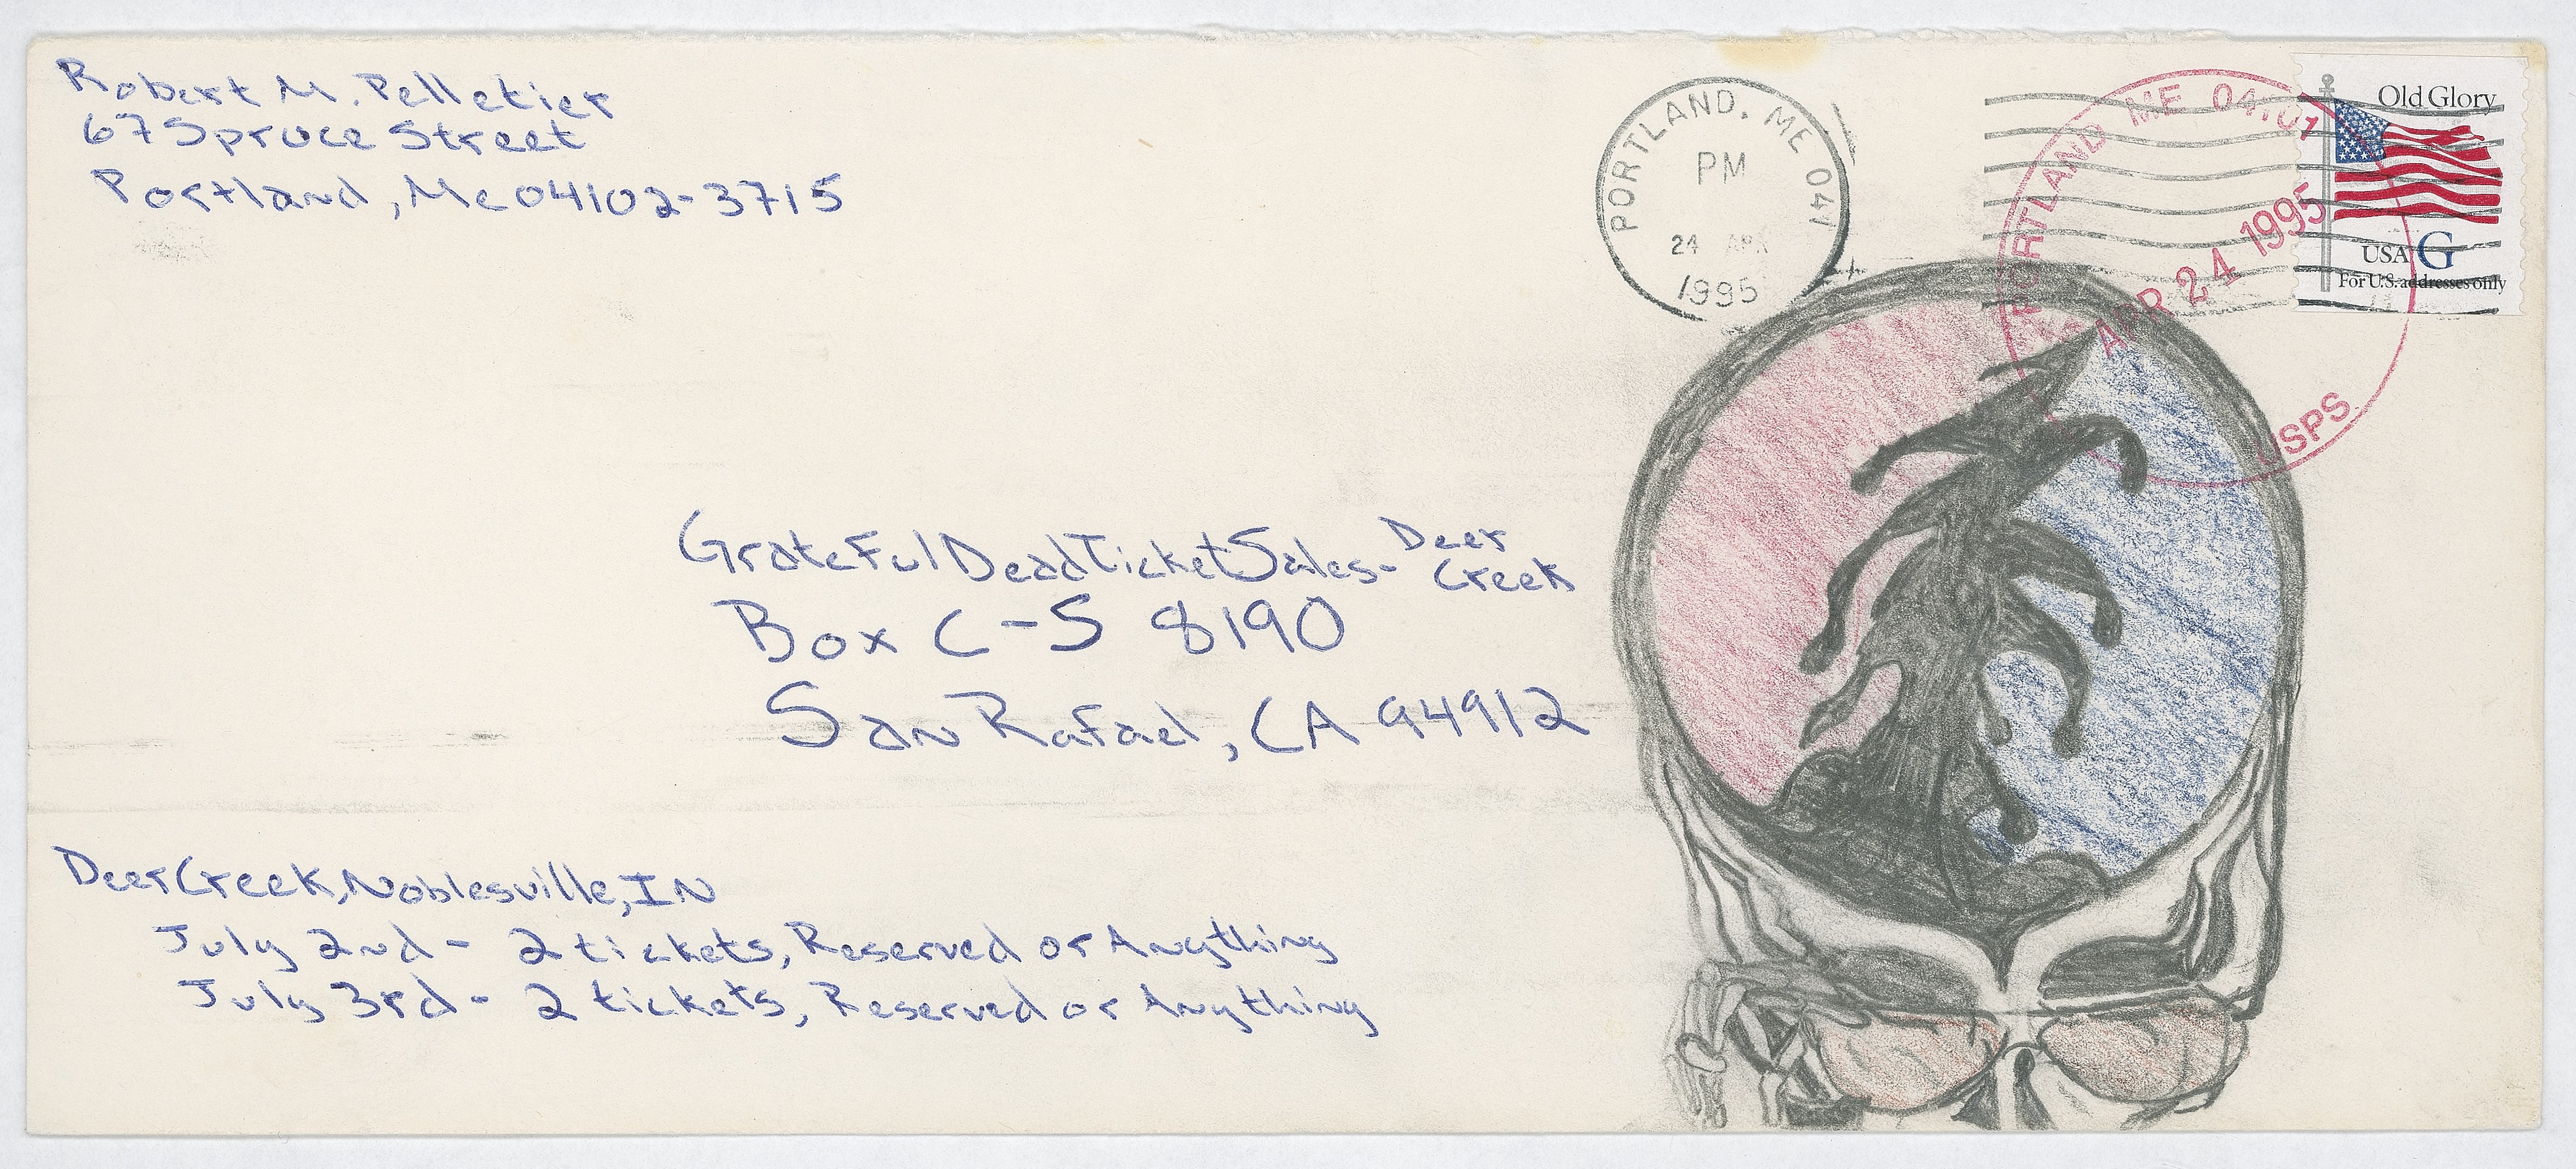 Robert M. Pelletier
67 Spruce Street
Portland, Me 04102-3715
PORTLAND, ME 041
PM
24 APR
1995
PORTLAND ME 04101
APR 24 1995
USPS
Old Glory
USA G
For U.S. addresses only
Grateful Dead Ticket Sales - Deer
Creek
Box C-S 8190
San Rafael, CA 94912
Deer Creek, Noblesville, IN
July 2nd - 2 tickets, Reserved or Anything
July 3rd - 2 tickets, Reserved or Anything